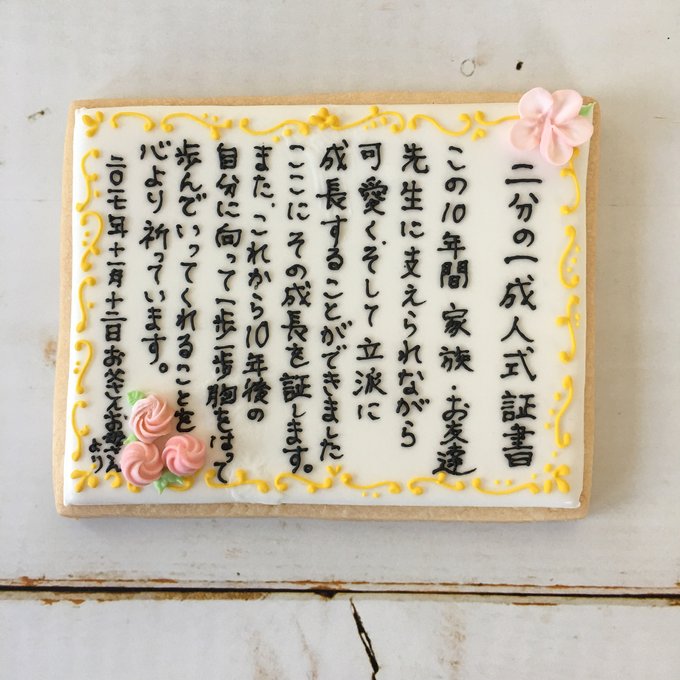 二分の一成人式 証書
この10年間 家族・お友達
先生に支えられながら
可愛く、そして立派に
成長することができました
ここにその成長を証します。
また、これから10年後の
自分に向って一歩一歩胸をはって
歩んでいってくれることを
心より祈っています。
二〇一七年十一月十二日お父さんお母さん
より